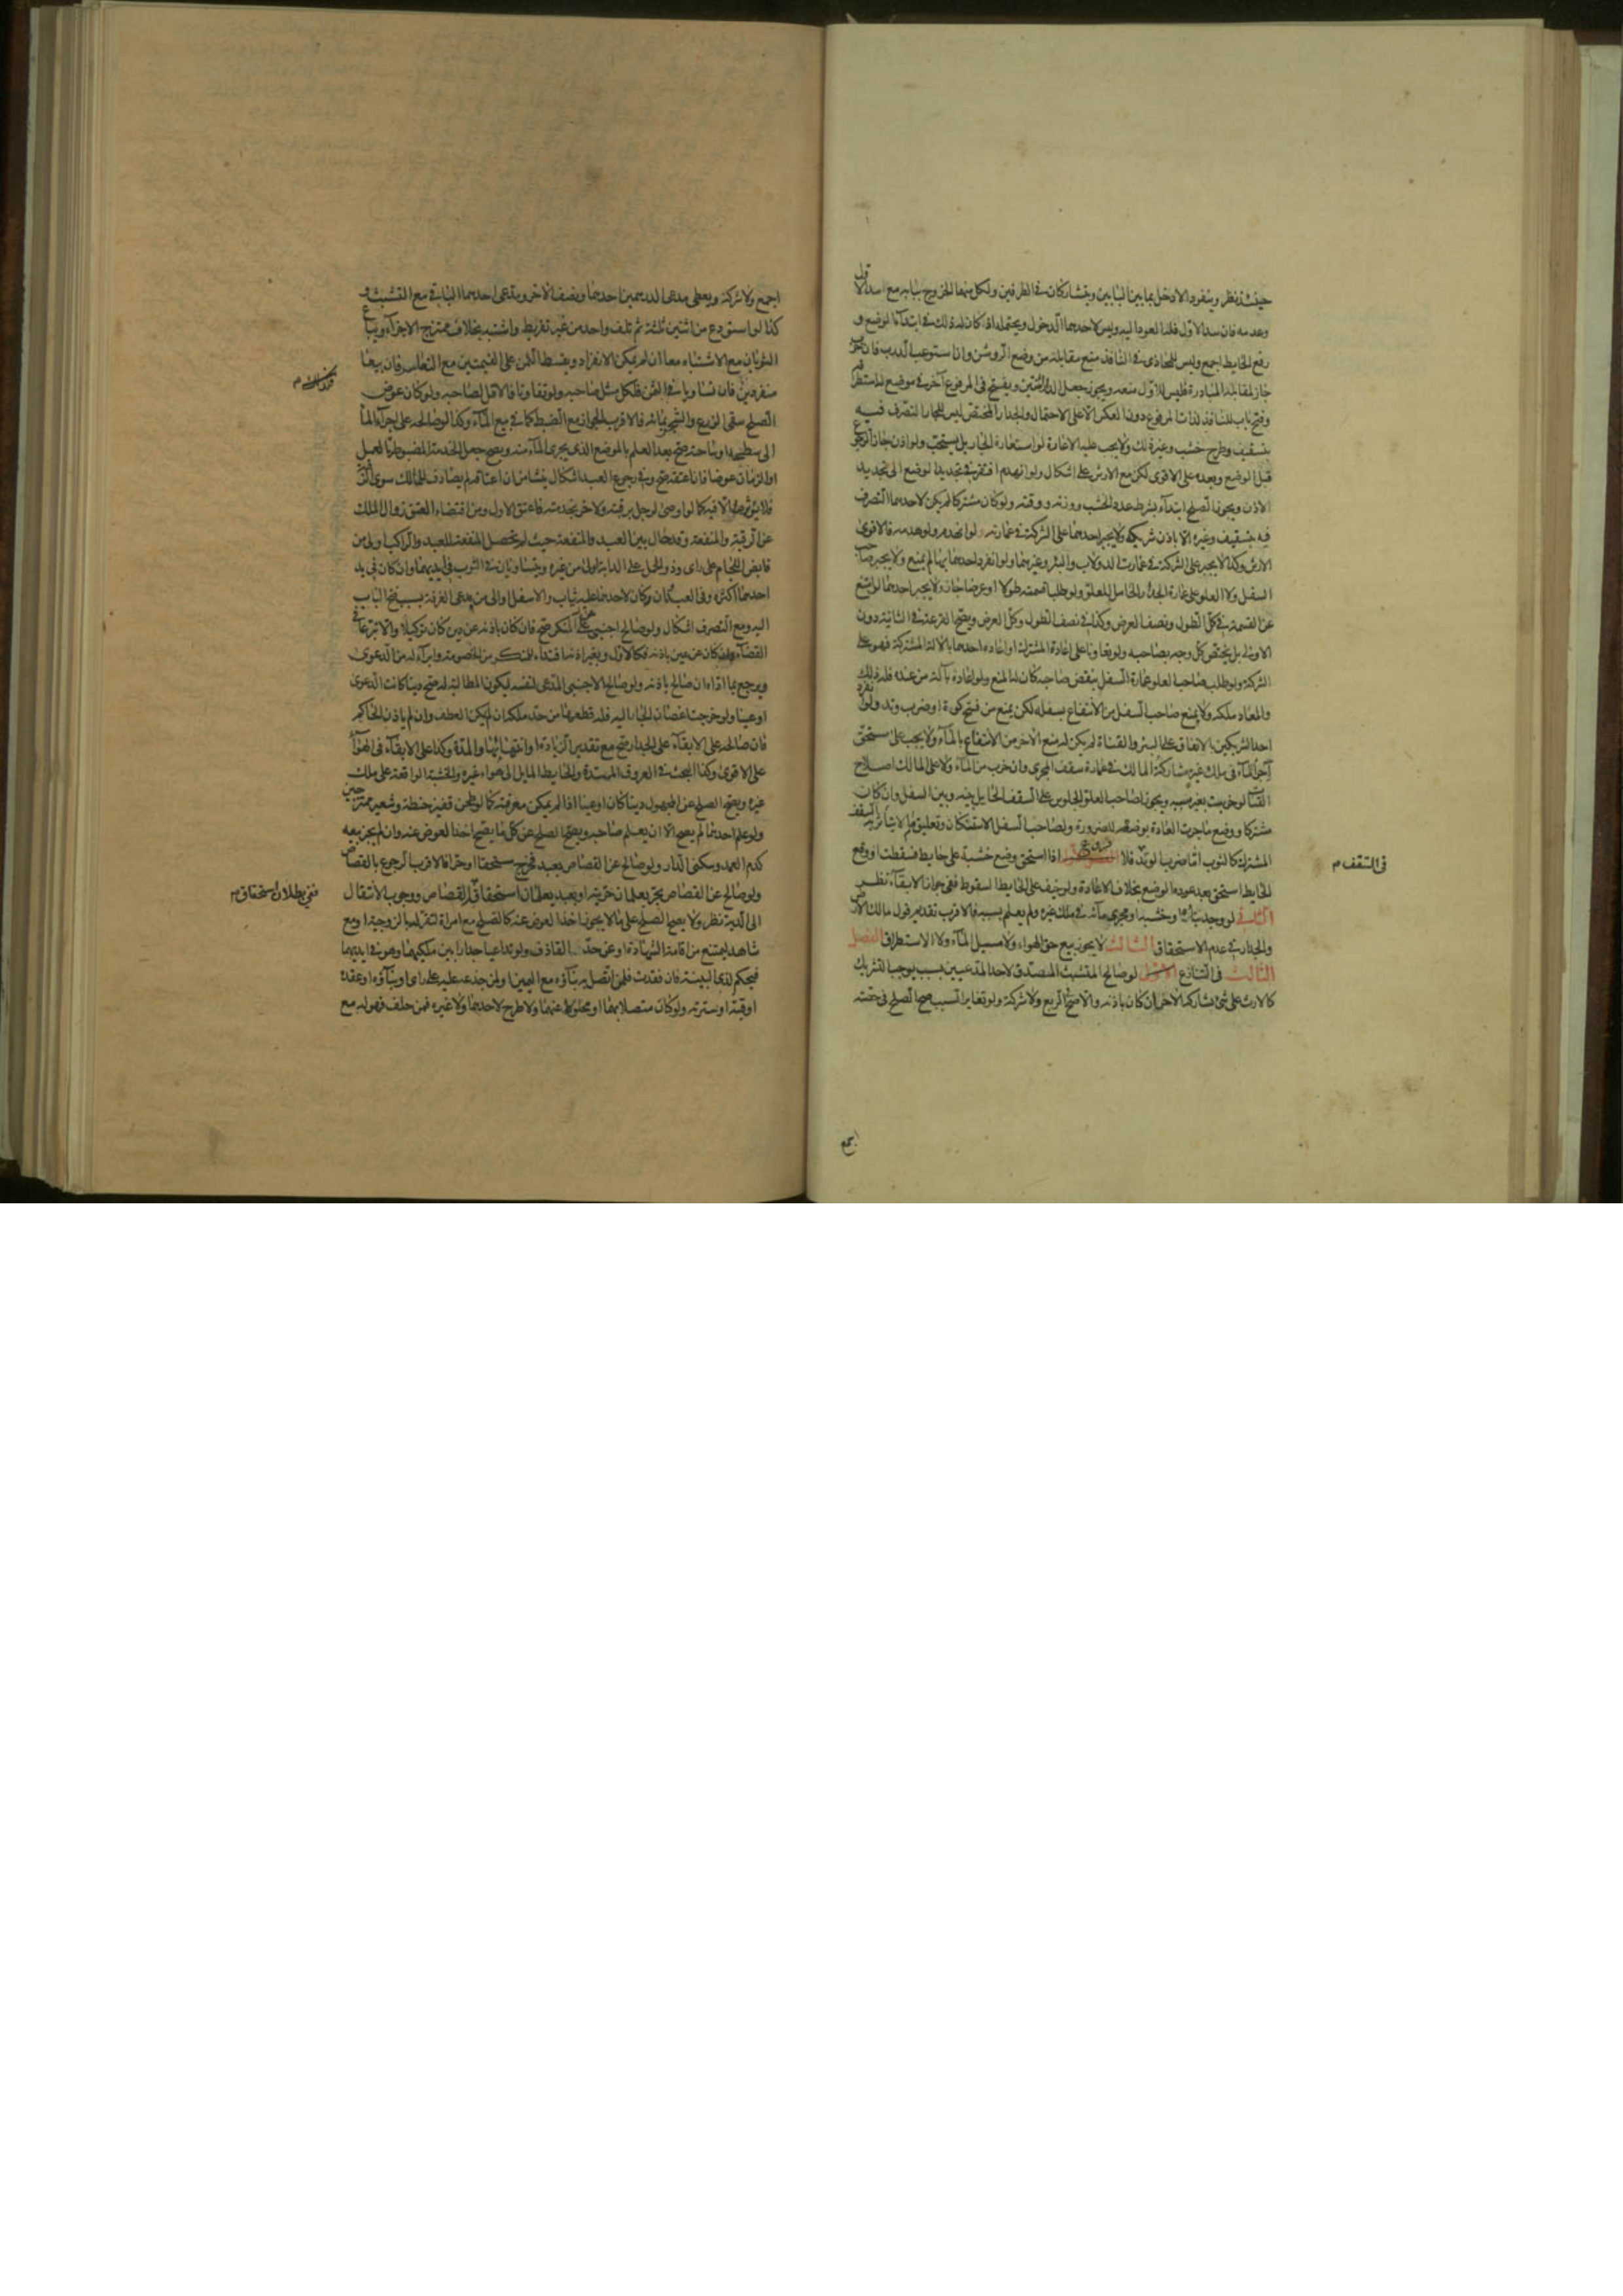 حينئذ نظر وينفرد الادخل بما بين البابين ويتشاركان في الطرفين ولكل منهما الخروج ببابه مع سد الاول
وعدمه فان سد الاول فله العود اليه وليس لاحدهما الدخول ويحتمل اذا كان له ذلك في ابتداء الوضع و
رفع الحايط اجمع وليس للمحاذى في النافذ منع مقابله من وضع الروشن وان استوعب الدرب فان خرب
جاز لمقابله المبادرة وليس للاول منعه ويجوز جعل الدار اثنتين ويفتح في المرفوع آخر في موضع له استطراقه
وفتح باب للنافذ لذات المرفوع دون العكس الا على الاحتمال والجدار المختص ليس للجار التصرف فيه
بتسقيف وطرح خشب وغير ذلك ولا يجب عليه الاعارة لو استعاره الجار بل يستحب ولو اذن جاز الرجوع
قبل الوضع وبعده على الاقوى لكن مع الارش على اشكال ولو انهدم افتقر في تجديد الوضع الى تجديد
الاذن ويجوز الصلح ابتداء بشرط عدد الخشب ووزنه ووقته ولو كان مشتركا لم يكن لاحدهما التصرف
فيه بتسقيف وغيره الا باذن شريكه ولا يجبر احدهما على الشركة في عمارته ولو انهدم ولو هدمه فالاقوى
الارش وكذا لا يجبر على الشركة في عمارة الدولاب والبئر وغيرهما ولو انفرد احدهما بها لم يمنع ولا يجبر صاحب
السفل ولا العلو على عمارة الجدار الحامل للعلو ولو طلبا قسمته طولا او عرضا جاز ولا يجبر احدهما لو امتنع
عن القسمة في كل الطول ونصف العرض وكذا في نصف الطول وكل العرض ويصح القرعة في الثانية دون
الاولى بل يختص كل وجه بصاحبه ولو تعاونا على اعادة المشترك او اعاده احدهما بالالة المشتركة فهو على
الشركة ولو طلب صاحب العلو عمارة السفل بنقض صاحبه كان له المنع ولو اعاده بآلة من عنده فله ذلك
والمعاد ملكه ولا يمنع صاحب السفل من الانتفاع بسفله لكن يمنع من فتح كوة او ضرب وتد ولو انفرد
احد الشريكين بالانفاق على البئر والقناة لم يكن له منع الاخر من الانتفاع بالماء ولا يجب على مستحق
اجراء الماء في ملك غيره مشاركة المالك في عمارة سقف المجرى وان خرب من الماء ولا على المالك اصلاح
القناة لو خربت بغير سببه ويجوز لصاحب العلو الجلوس على السقف الحايل بينه وبين السفل وان كان
مشتركا ووضع ما جرت العادة بوضعه للضرورة ولصاحب السفل الاستكنان وتعليق ما لا يتأثر به السقف
المشترك كالثوب اما ضرب الوتد فلا اذا استحق وضع خشبة على حايط فسقطت او وقع
الحايط استحق بعد عوده الوضع بخلاف الاعارة ولو خيف على الحايط السقوط ففي جواز الابقاء نظر
الثاني لو وجد بناءه او خشبه او مجرى مائه في ملك غيره ولم يعلم بسببه فالاقرب تقديم قول مالك الارض
والجدار في عدم الاستحقاق الثالث لا يجوز بيع حق الهواء ولا مسيل الماء ولا الاستطراق الفصل
الثالث في التنازع لو صالح المتشبث المصدق لاحد المدعيين بسبب يوجب التشريك
كالارث على شئ يشاركه الاخر ان كان باذنه والا صح الربع ولا شركة ولو تغاير السبب صح الصلح في حصته
في السقف م
اجمع
اجمع ولا شركة ويعطى مدعى الدرهمين احدهما ونصف الاخر ومدعى احدهما الباقي مع التشبث و
كذا لو استودع من اثنين ثلثة ثم تلف واحد من غير تفريط واشتبه بخلاف ممتزج الاجزاء ويباع
الثوبان مع الاشتباه معا ان لم يمكن الانفراد ويقسط الثمن على القيمتين مع التعاسر فان بيعا
منفردين فان تساويا في الثمن فلكل مثل صاحبه ولو تفاوتا فالاقل لصاحبه ولو كان عوض
الصلح سقى الزرع والشجر بمائه فالاقرب الجواز مع الضبط كما في بيع الماء وكذا لو صالحه على اجراء الماء
الى سطحه او ساحته صح بعد العلم بالموضع الذى يجرى الماء منه ويصح جعل الخدمة المضبوطة بالعمل
او الزمان عوضا فان اعتقه صح وفي رجوع العبد اشكال ينشأ من ان اعتاقه لم يصادف للمالك سوى الرقبة
فلا يؤثر الا فيه كما لو اوصى لرجل برقبته ولاخر بخدمته فاعتق الاول ومن اقتضاء العتق زوال الملك
عن الرقبة والمنفعة وقد حال بين العبد والمنفعة حيث لم يحصل المنفعة للعبد والراكب اولى من
قابض اللجام على راى وذو الحمل على الدابة اولى من غيره ويتساويان في الثوب في ايديهما وان كان في يد
احدهما اكثره وفي العبد وان كان لاحدهما عليه ثياب والاسفل اولى من مدعى الغرفة بسبب فتح الباب
اليه ومع التصرف اشكال ولو صالح اجنبى على المنكر صح فان كان باذنه عن دين كان توكيلا والا تبرعا في
القضاء وان كان عن عين باذنه فكالاول وبغير اذنه افتداء للمنكر من الخصومة وابراء له من الدعوى
ويرجع بما اداه ان صالح باذنه ولو صالح الاجنبى المدعى لنفسه ليكون المطالبة له صح دينا كانت الدعوى
او عينا ولو خرجت اغصان الجار اليه فله قطعها من حد ملكه ان لم يكن العطف وان لم ياذن الحاكم
فان صالحه على الابقاء على الجدار صح مع تقدير الزيادة او انتهائها والمدة وكذا على الابقاء في الهواء
على الاقوى وكذا البحث في العروق الممتدة والحايط المايل الى هواء غيره والخشبة الواقعة على ملك
غيره ويصح الصلح عن المجهول دينا كان او عينا اذا لم يمكن معرفته كما لو طحن قفيز حنطة وشعير ممتزجين
ولو علم احدهما لم يصح الا ان يعلم صاحبه ويصح الصلح عن كل ما يصح اخذ العوض عنه وان لم يجز بيعه
كدم العمد وسكنى الدار ولو صالح عن القصاص بعبد فخرج مستحقا او حرا فالاقرب الرجوع بالقصاص
ولو صالح عن القصاص بحر يعلمان حريته او بعبد يعلمان استحقاقه فالقصاص ووجوب الانتقال
الى الدية نظر ولا يصح الصلح على ما لا يجوز اخذ العوض عنه كالصلح مع امراة لتقر له بالزوجية او مع
شاهد ليمتنع من اقامة الشهادة او عن حد القاذف ولو تداعيا جدارا بين ملكيهما وهو في ايديهما
فيحكم لذى البينة فان فقدت فلمن اتصل به بناؤه مع اليمين او لمن جذعه عليه على راى او بناؤه او عقده
او قبته او سترته ولو كان متصلا بهما او محلولا عنهما ولا طرح لاحدهما ولا غيره فمن حلف فهو له مع
ففي بطلان استحقاق م